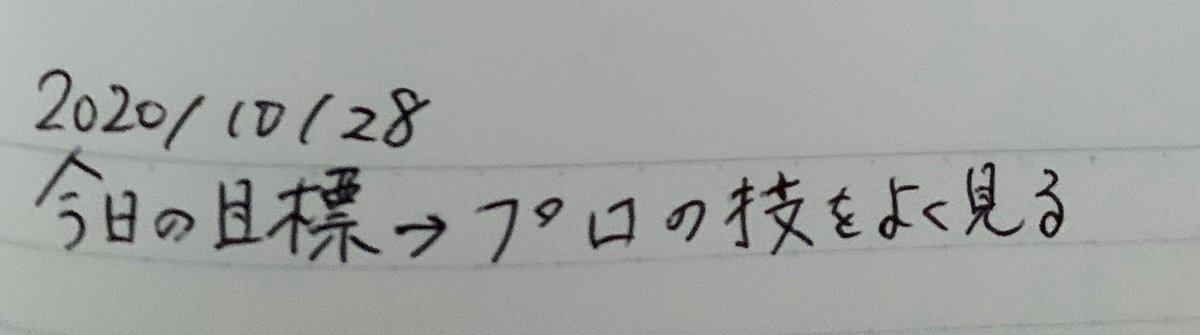 2020/10/28
今日の目標→プロの技をよく見る